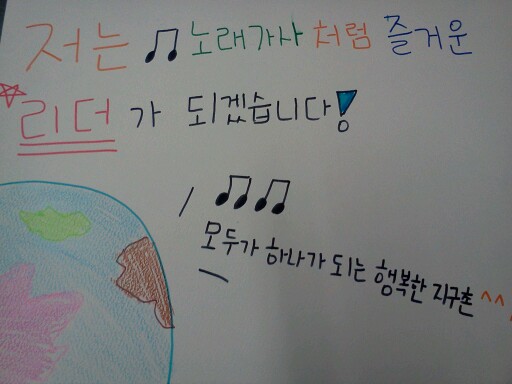 저는 ♫ 노래가사 처럼 즐거운
리더가 되겠습니다!
♫ ♫
모두가 하나가 되는 행복한 지구촌 ^^